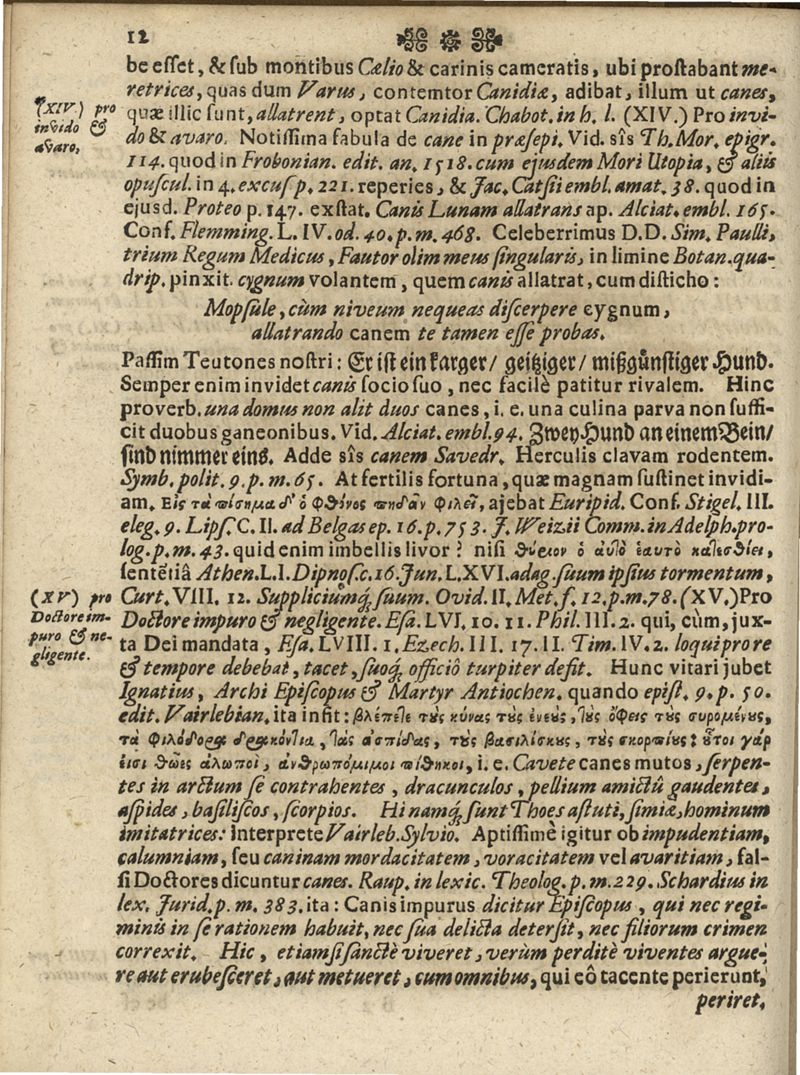 12
be esset, & sub montibus Cælio & carinis cameratis, ubi prostabant me-
retrices, quas dum Varus, contemtor Canidiæ, adibat, illum ut canes,
(XIV) pro
invido &
avaro,
quæ illic sunt, allatrent, optat Canidia. Chabot. in h. l. (XIV.) Pro invi-
do & avaro. Notissima fabula de cane in præsepi. Vid. sîs Th. Mor. epigr.
114. quod in Frobonian. edit. an. 1518. cum ejusdem Mori Utopia, & aliis
opuscul. in 4. excus p. 221. reperies, & Jac. Catsii embl. amat. 38. quod in
ejusd. Proteo p. 147. exstat. Canis Lunam allatrans ap. Alciat. embl. 165.
Conf. Flemming. L. IV. od. 40. p. m. 468. Celeberrimus D. D. Sim. Paulli,
trium Regum Medicus, Fautor olim meus singularis, in limine Botan. qua-
drip. pinxit cygnum volantem, quem canis allatrat, cum disticho:
Mopsule, cùm niveum nequeas discerpere cygnum,
allatrando canem te tamen esse probas.
Passim Teutones nostri: Er ist ein karger / geitziger / mißgůnstiger Hund.
Semper enim invidet canis socio suo, nec facilè patitur rivalem. Hinc
proverb. una domus non alit duos canes, i. e. una culina parva non suffi-
cit duobus ganeonibus. Vid. Alciat. embl. 94. Zwey Hund an einem Bein /
sind nimmer eins. Adde sîs canem Savedr. Herculis clavam rodentem.
Symb. polit. 9. p. m. 65. At fertilis fortuna, quæ magnam sustinet invidi-
am. Εἰς τὰ πίσημα δ' ὁ φθόνος πηδᾶν φιλεῖ, ajebat Euripid. Conf. Stigel. III.
eleg. 9. Lips. C. II. ad Belgas ep. 16. p. 753. J. Weizii Comm. in Adelph. pro-
log. p. m. 43. quid enim imbellis livor? nisi ὁ αὐτὸ ἑαυτὸ κατεσθίει,
sententiâ Athen. L. I. Dipnos. c. 16. Jun. L. XVI. adag. suum ipsius tormentum,
(XV) pro
Doctore im-
puro & ne-
gligente.
Curt. VIII. 12. Suppliciumq́ suum. Ovid. II. Met. f. 12. p. m. 78. (XV.) Pro
Doctore impuro & negligente. Esa. LVI. 10. 11. Phil. III. 2. qui, cùm, jux-
ta Dei mandata, Esa. LVIII. 1. Ezech. III. 17. II. Tim. IV. 2. loqui pro re
& tempore debebat, tacet, suoq́ officiô turpiter desit. Hunc vitari jubet
Ignatius, Archi Episcopus & Martyr Antiochen. quando epist. 9. p. 50.
edit. Vairlebian. ita infit: βλέπετε τοὺς κύνας τοὺς ἐνεοὺς, τοὺς ὄφεις τοὺς συρομένους,
τὰ φιλόδορα δρακόντια, τὰς ἀσπίδας, τοὺς βασιλίσκους, τοὺς σκορπίους: οὗτοι γάρ
εἰσι θῶες ἀλωποὶ, ἀνθρωπόμιμοι πίθηκοι, i. e. Cavete canes mutos, serpen-
tes in arctum se contrahentes, dracunculos, pellium amictû gaudentes,
aspides, basiliscos, scorpios. Hi namq́ sunt Thoes astuti, simiæ, hominum
imitatrices: interprete Vairleb. Sylvio. Aptissimè igitur ob impudentiam,
calumniam, seu caninam mordacitatem, voracitatem vel avaritiam, fal-
si Doctores dicuntur canes. Raup. in lexic. Theolog. p. m. 229. Schardius in
lex. Jurid. p. m. 383. ita: Canis impurus dicitur Episcopus, qui nec regi-
minis in se rationem habuit, nec sua delicta detersit, nec filiorum crimen
correxit. Hic, etiamsi sanctè viveret, verùm perditè viventes argue-
re aut erubesceret, aut metueret, cum omnibus, qui eô tacente perierunt,
periret.